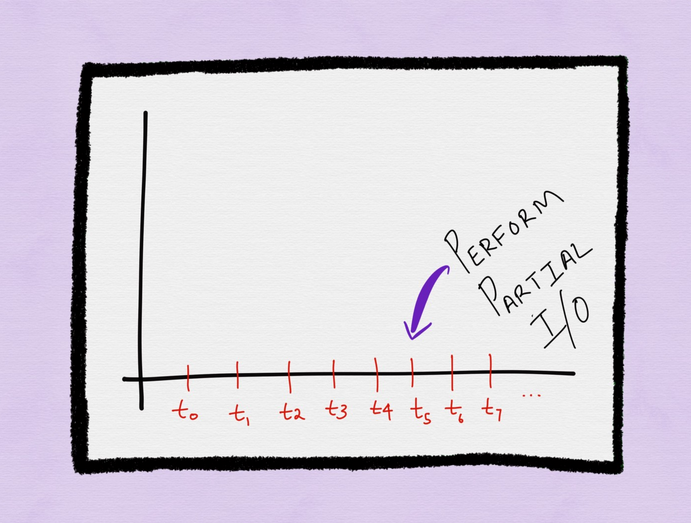 PERFORM
PARTIAL
I/O
t0 t1 t2 t3 t4 t5 t6 t7 ...